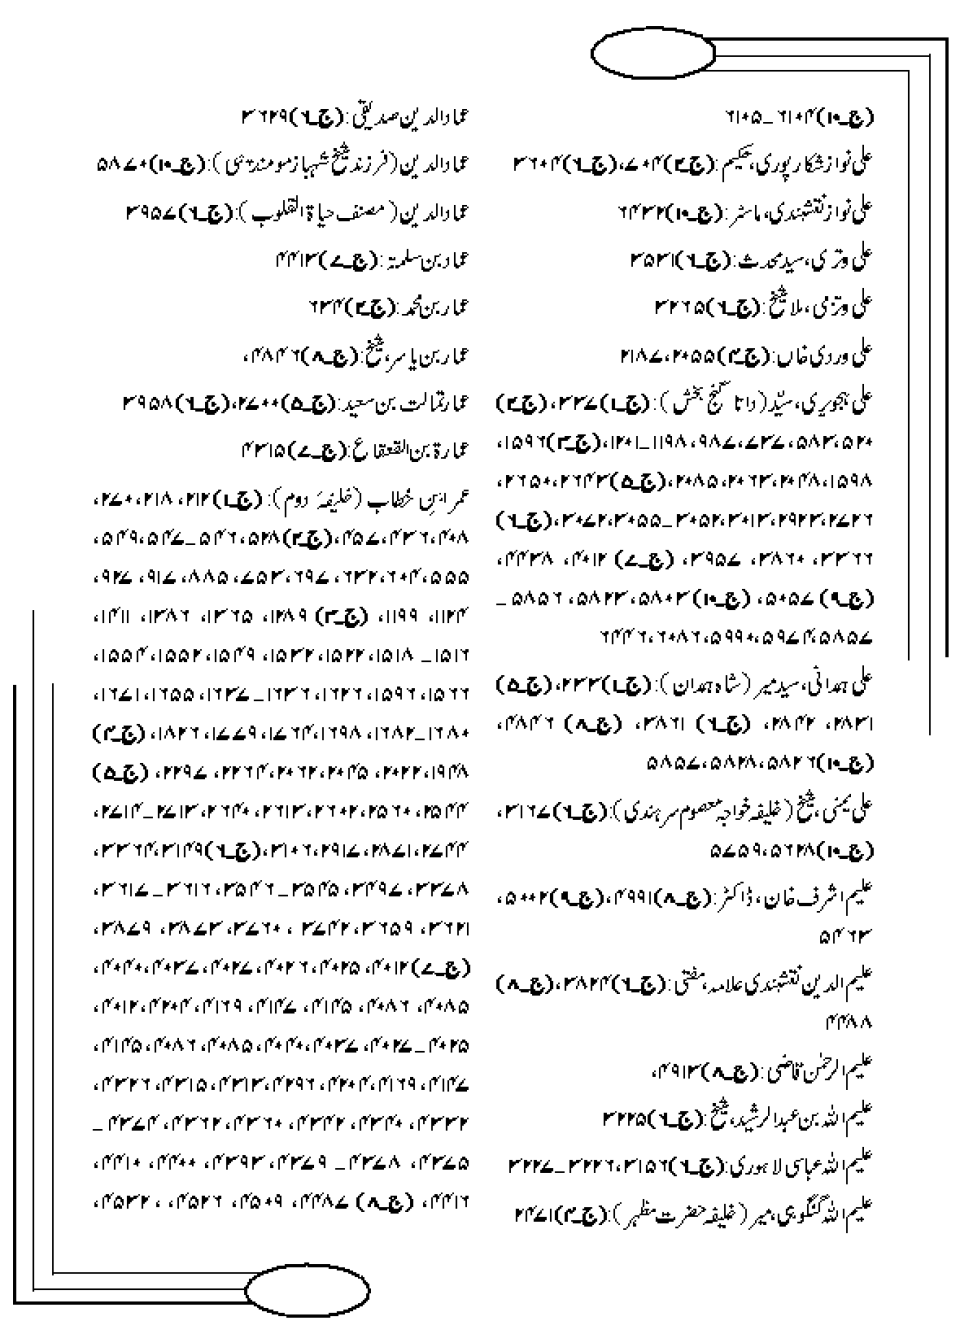 (ج۔۱۰)۶۱۰۴۔۶۱۰۵
علی نواز شکارپوری، حکیم:(ج۔۲)۷۰۴،(ج۔۶)۳۶۰۴
علی نواز نقشبندی، ماسٹر:(ج۔۱۰)۶۴۳۲
علی وتری، سید محدث:(ج۔۶)۳۵۳۱
علی وتزمی، ملا شیخ:(ج۔۶)۳۲۶۵
علی وردی خاں:(ج۔۴)۲۰۵۵،۲۱۸۷
علی ہجویری، سیّد(داتا گنج بخش):(ج۔۱)۲۳۷،(ج۔۲)
۵۲۰،۵۸۳،۷۳۷،۹۸۷،۱۱۹۸۔۱۲۰۱،(ج۔۳)۱۵۹۶،
۱۵۹۸،۲۰۴۸،۲۰۶۳،۲۰۸۵،(ج۔۵)۲۶۴۳،۲۶۵۰،
۲۷۲۶،۲۹۲۳،۳۰۱۳،۳۰۵۲۔۳۰۵۵،۳۰۷۲،(ج۔۶)
۳۳۶۶، ۳۸۶۰، ۳۹۵۷، (ج۔۷) ۴۰۱۲، ۴۴۳۸،
(ج۔۹)۵۰۵۷، (ج۔۱۰)۵۸۰۳،۵۸۲۳، ۵۸۵۶۔
۵۸۵۷،۵۹۷۴،۵۹۹۰،۶۰۸۶،۶۴۴۶
علی ہمدانی، سید میر (شاہ ہمدان):(ج۔۱)۲۳۳،(ج۔۵)
۲۸۳۱، ۲۸۴۲، (ج۔۶) ۳۸۶۱، (ج۔۸) ۴۸۴۶،
(ج۔۱۰)۵۸۲۶،۵۸۲۸،۵۸۵۷
علی یمنی، شیخ (خلیفہ خواجہ معصوم سرہندی):(ج۔۶)۳۱۶۷،
(ج۔۱۰)۵۶۲۸،۵۷۵۹
علیم اشرف خان، ڈاکٹر:(ج۔۸)۴۹۹۱،(ج۔۹)۵۰۰۲،
۵۴۶۳
علیم الدین نقشبندی علامہ، مفتی:(ج۔۶)۳۸۲۴،(ج۔۸)
۴۴۸۸
علیم الرحمٰن قاضی:(ج۔۸)۴۹۱۳،
علیم اللہ بن عبدالرشید، شیخ:(ج۔۶)۳۲۲۵
علیم اللہ عباسی لاہوری:(ج۔۶)۳۱۵۶،۳۲۲۶۔۳۲۲۷
علیم اللہ گنگوہی، میر (خلیفہ حضرت مظہر):(ج۔۴)۲۴۷۱
عمادالدین صدیقی:(ج۔۶)۳۶۲۹
عمادالدین(فرزند شیخ شہباز مومند):(ج۔۱۰)۵۸۷۰
عمادالدین(مصنف حیاۃ القلوب):(ج۔۶)۳۹۵۷
عماد بن سلمۃ:(ج۔۷)۴۴۱۳
عمار بن محمد:(ج۔۲)۶۳۴
عمار بن یاسر، شیخ:(ج۔۸)۴۸۴۶،
عمار ثمالت بن سعید:(ج۔۵)۲۷۰۰،(ج۔۶)۳۹۵۸
عمارۃ بن القعقاع:(ج۔۷)۴۳۱۵
عمر ابنِ خطاب (خلیفۂ دوم):(ج۔۱)۲۱۲، ۲۱۸، ۲۷۰،
۴۰۸،۴۳۶،۴۵۷،(ج۔۲)۵۲۸،۵۴۶۔۵۴۷،۵۴۹،
۵۵۵،۶۰۴،۶۳۲،۶۹۷،۷۵۳،۸۸۵، ۹۱۷، ۹۲۷،
۱۱۲۴، ۱۱۹۹، (ج۔۳) ۱۲۸۹، ۱۳۶۵، ۱۳۸۶، ۱۴۱۱،
۱۵۱۶۔ ۱۵۱۸، ۱۵۲۲، ۱۵۳۲، ۱۵۴۹، ۱۵۵۲، ۱۵۵۴،
۱۵۶۶، ۱۵۹۶، ۱۶۲۶، ۱۶۳۶۔۱۶۳۷، ۱۶۵۵، ۱۶۷۱،
۱۶۸۰۔۱۶۸۲، ۱۶۹۸، ۱۷۶۴، ۱۷۷۹، ۱۸۲۶، (ج۔۴)
۱۹۴۸، ۲۰۲۲، ۲۰۴۵، ۲۰۶۲، ۲۲۶۴، ۲۲۹۷، (ج۔۵)
۲۵۴۴، ۲۵۶۰، ۲۶۰۲، ۲۶۱۳، ۲۶۴۰، ۲۷۱۳۔۲۷۱۴،
۲۷۴۴، ۲۸۷۱، ۲۹۱۷، ۳۱۰۶،(ج۔۶)۳۱۴۹، ۳۳۶۴،
۳۳۷۸، ۳۴۹۷، ۳۵۴۵۔۳۵۴۶، ۳۶۱۶۔۳۶۱۷،
۳۶۲۱، ۳۶۵۹، ۳۷۴۲، ۳۷۶۰، ۳۸۷۳، ۳۸۷۹،
(ج۔۷)۴۰۱۲، ۴۰۲۵، ۴۰۲۶، ۴۰۲۷، ۴۰۳۷، ۴۰۴۰،
۴۰۸۵، ۴۰۸۶، ۴۱۴۵، ۴۱۴۷، ۴۱۶۹، ۴۲۰۴، ۴۰۱۲،
۴۰۲۵۔۴۰۲۷، ۴۰۳۷، ۴۰۴۰، ۴۰۸۵، ۴۰۸۶، ۴۱۴۵،
۴۱۴۷، ۴۱۶۹، ۴۲۰۴، ۴۲۹۶، ۴۳۱۳، ۴۳۱۵، ۴۳۲۶،
۴۳۳۲، ۴۳۴۰، ۴۳۴۲، ۴۳۶۰، ۴۳۶۲، ۴۳۷۴۔
۴۳۷۵، ۴۳۷۸۔ ۴۳۷۹، ۴۳۹۳، ۴۴۰۰، ۴۴۱۰،
۴۴۱۶، (ج۔۸) ۴۴۸۷، ۴۵۰۹، ۴۵۲۶، ۴۵۳۲،